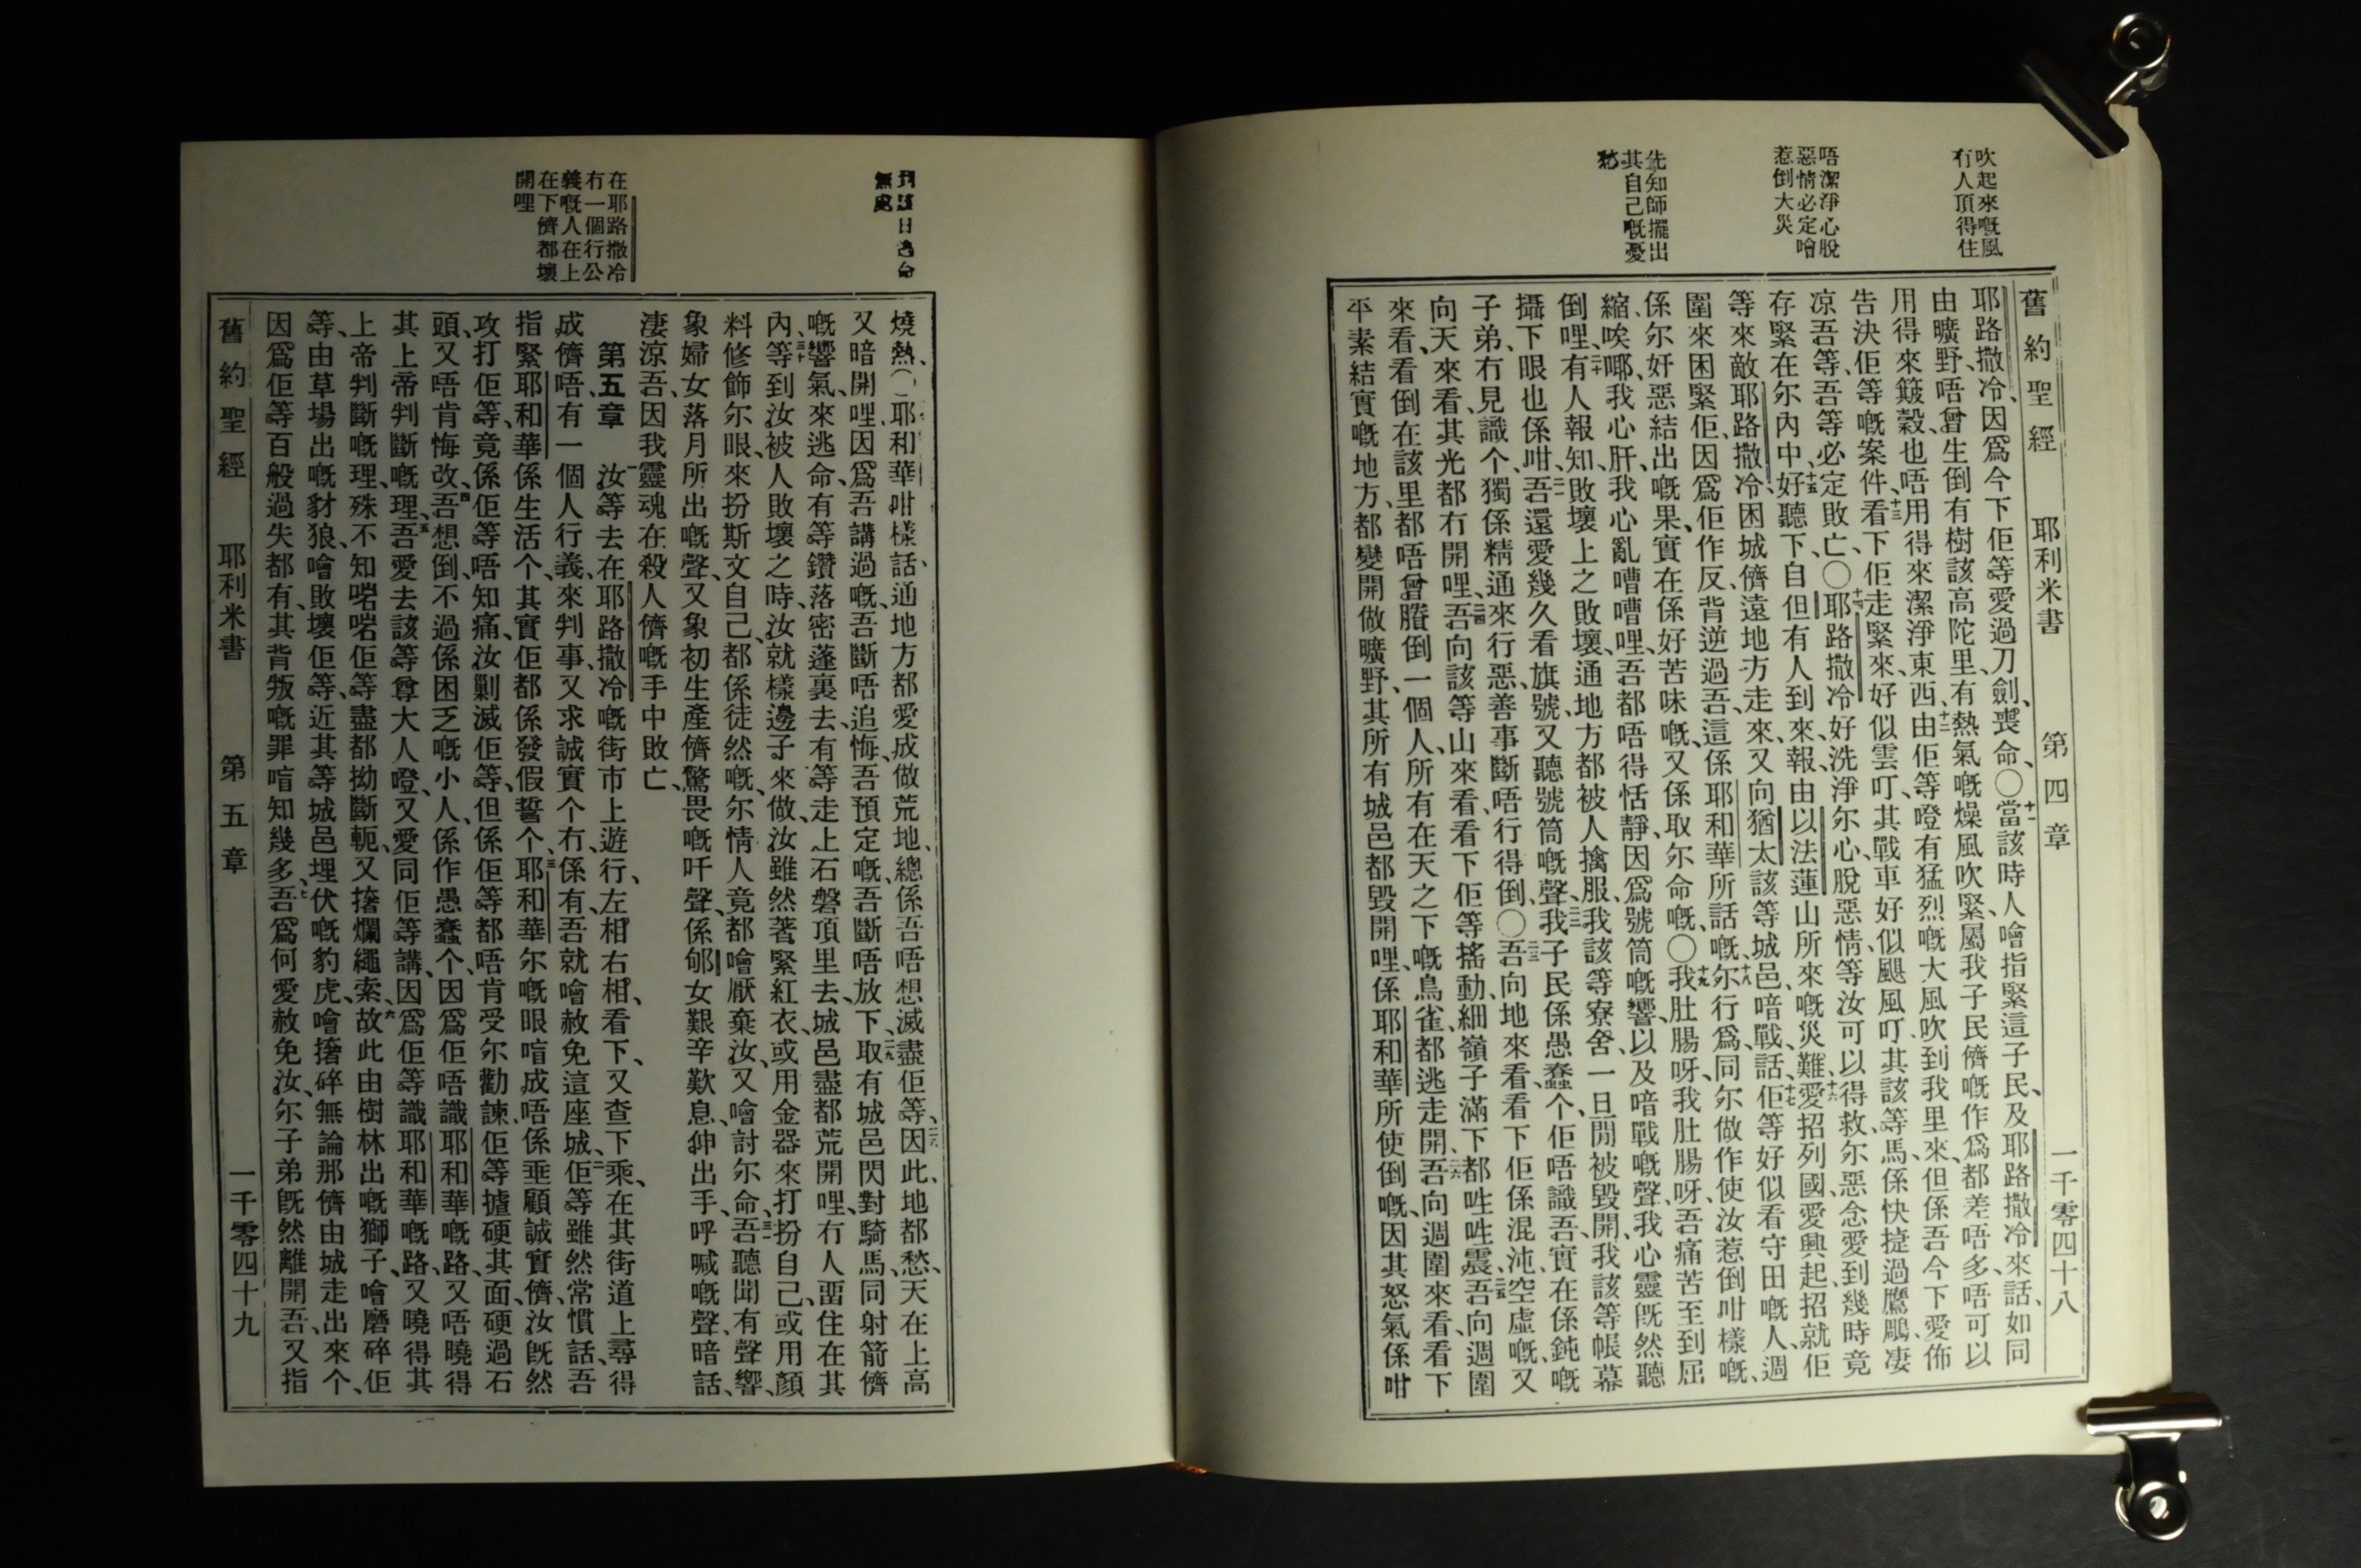 吹起來嘅風
冇人頂得住
唔潔淨心脫
惡情必定噲
惹倒大災
先知師擺出
其自己嘅憂
愁
舊約聖經 耶利米書 第四章 一千零四十八
耶路撒冷、因爲今下佢等愛過刀劍、喪命、〇十一當該時人噲指緊這子民、及耶路撒冷來話、如同
由曠野、唔曾生倒有樹該高陀里、有熱氣嘅燥風吹緊、屬我子民儕嘅作爲都差唔多、唔可以
用得來簸穀、也唔用得來潔淨東西、十二由佢等噔有猛烈嘅大風吹到我里來、但係吾今下愛佈
告決佢等嘅案件、十三看下佢走緊來、好似雲叮、其戰車好似颶風叮、其該等馬、係快㨗過鷹鵰、凄
凉吾等、吾等必定敗亡、〇十四耶路撒冷好洗淨尔心、脫惡情、等汝可以得救、尔惡念愛到幾時竟
存緊在尔內中、十五好聽下、自但有人到來、報由以法蓮山所來嘅災難、十六愛招列國、愛興起、招就佢
等來敵耶路撒冷、困城儕遠地方走來、又向猶太該等城邑喑戰、十七話佢等好似看守田嘅人、週
圍來困緊佢、因爲佢作反、背逆過吾、這係耶和華所話嘅、十八尔行爲、同尔做作使汝惹倒咁樣嘅、
係尔奸惡結出嘅果、實在係好苦味嘅、又係取尔命嘅、〇十九我肚腸呀、我肚腸呀、吾痛苦至到屈
縮、唉㖿、我心肝、我心亂嘈嘈哩、吾都唔得恬靜、因爲號筒嘅響、以及喑戰嘅聲、我心靈旣然聽
倒哩、二十有人報知、敗壞上之敗壞、通地方都被人擒服、我該等寮舍、一日閒被毀開、我該等帳幕
攝下眼也係咁、二一吾還愛幾久看旗號、又聽號筒嘅聲、二二我子民係愚蠢个、佢唔識吾、實在係鈍嘅
子弟、冇見識个、獨係精通來行惡、善事斷唔行得倒、〇二三吾向地來看、看下佢係混沌空虛嘅、又
向天來看、其光都冇開哩、二四吾向該等山來看、看下佢等搖動、細嶺子滿下都甡甡震、二五吾向週圍
來看、看倒在該里都唔曾賸倒一個人、所有在天之下嘅鳥雀、都逃走開、二六吾向週圍來看、看下
平素結實嘅地方、都變開做曠野、其所有城邑都毀開哩、係耶和華所使倒嘅、因其怒氣係咁
無處
在耶路撒冷
冇一個行公
義嘅人在上
在下儕都壞
開哩
燒熱、耶和華咁樣話、通地方都愛成做荒地、總係吾唔想滅盡佢等、二八因此、地都愁、天在上高
又暗開哩、因爲吾講過嘅、吾斷唔追悔、吾預定嘅、吾斷唔放下、二九取有城邑閃對騎馬、同射箭儕
嘅響氣、來逃命、有等鑽落密蓬裏去、有等走上石磐頂里去、城邑盡都荒開哩、冇人畱住在其
內、三十等到汝被人敗壞之時、汝就樣邊子來做、汝雖然著緊紅衣、或用金器來打扮自己、或用顏
料修飾尔眼、來扮斯文自己、都係徒然嘅、尔情人竟都噲厭棄汝、又噲討尔命、三一吾聽聞有聲響、
象婦女落月所出嘅聲、又象初生產儕驚畏嘅吀聲、係郇女艱辛歎息、䏠出手、呼喊嘅聲、喑話、
凄凉吾、因我靈魂在殺人儕嘅手中敗亡、
第五章 一汝等去在耶路撒冷嘅街市上遊行、左相右相、看下、又查下、乘在其街道上尋得
成儕唔、有一個人行義、來判事、又求誠實个冇、係有、吾就噲赦免這座城、二佢等雖然常慣話、吾
指緊耶和華係生活个、其實佢都係發假誓个、三耶和華尔嘅眼、唷成唔係垂顧誠實儕、汝旣然
攻打佢等、竟係佢等唔知痛、汝剿滅佢等、但係佢等都唔肯受尔勸諫、佢等攎硬其面、硬過石
頭、又唔肯悔改、四吾想倒、不過係困乏嘅小人、係作愚蠢个、因爲佢唔識耶和華嘅路、又唔曉得
其上帝判斷嘅理、五吾愛去該等尊大人噔、又愛同佢等講、因爲佢等識耶和華嘅路、又曉得其
上帝判斷嘅理、殊不知啱啱佢等盡都拗斷軛、又撦爛繩索、六故此由樹林出嘅獅子、噲磨碎佢
等、由草場出嘅豺狼、噲敗壞佢等、近其等城邑埋伏嘅豹虎、噲撦碎無論那儕、由城走出來个、
因爲佢等百般過失都有、其背叛嘅罪唷知幾多、七吾爲何愛赦免汝、尔子弟旣然離開吾、又指
舊約聖經 耶利米書 第五章 一千零四十九